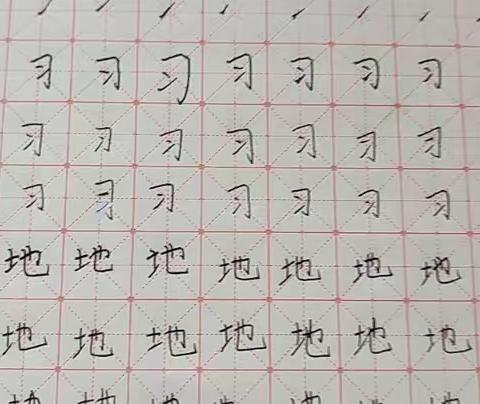 习 习 习 习 习 习 习
习 习 习 习 习 习 习
习 习 习 习 习 习 习
地 地 地 地 地 地 地
地 地 地 地 地 地 地